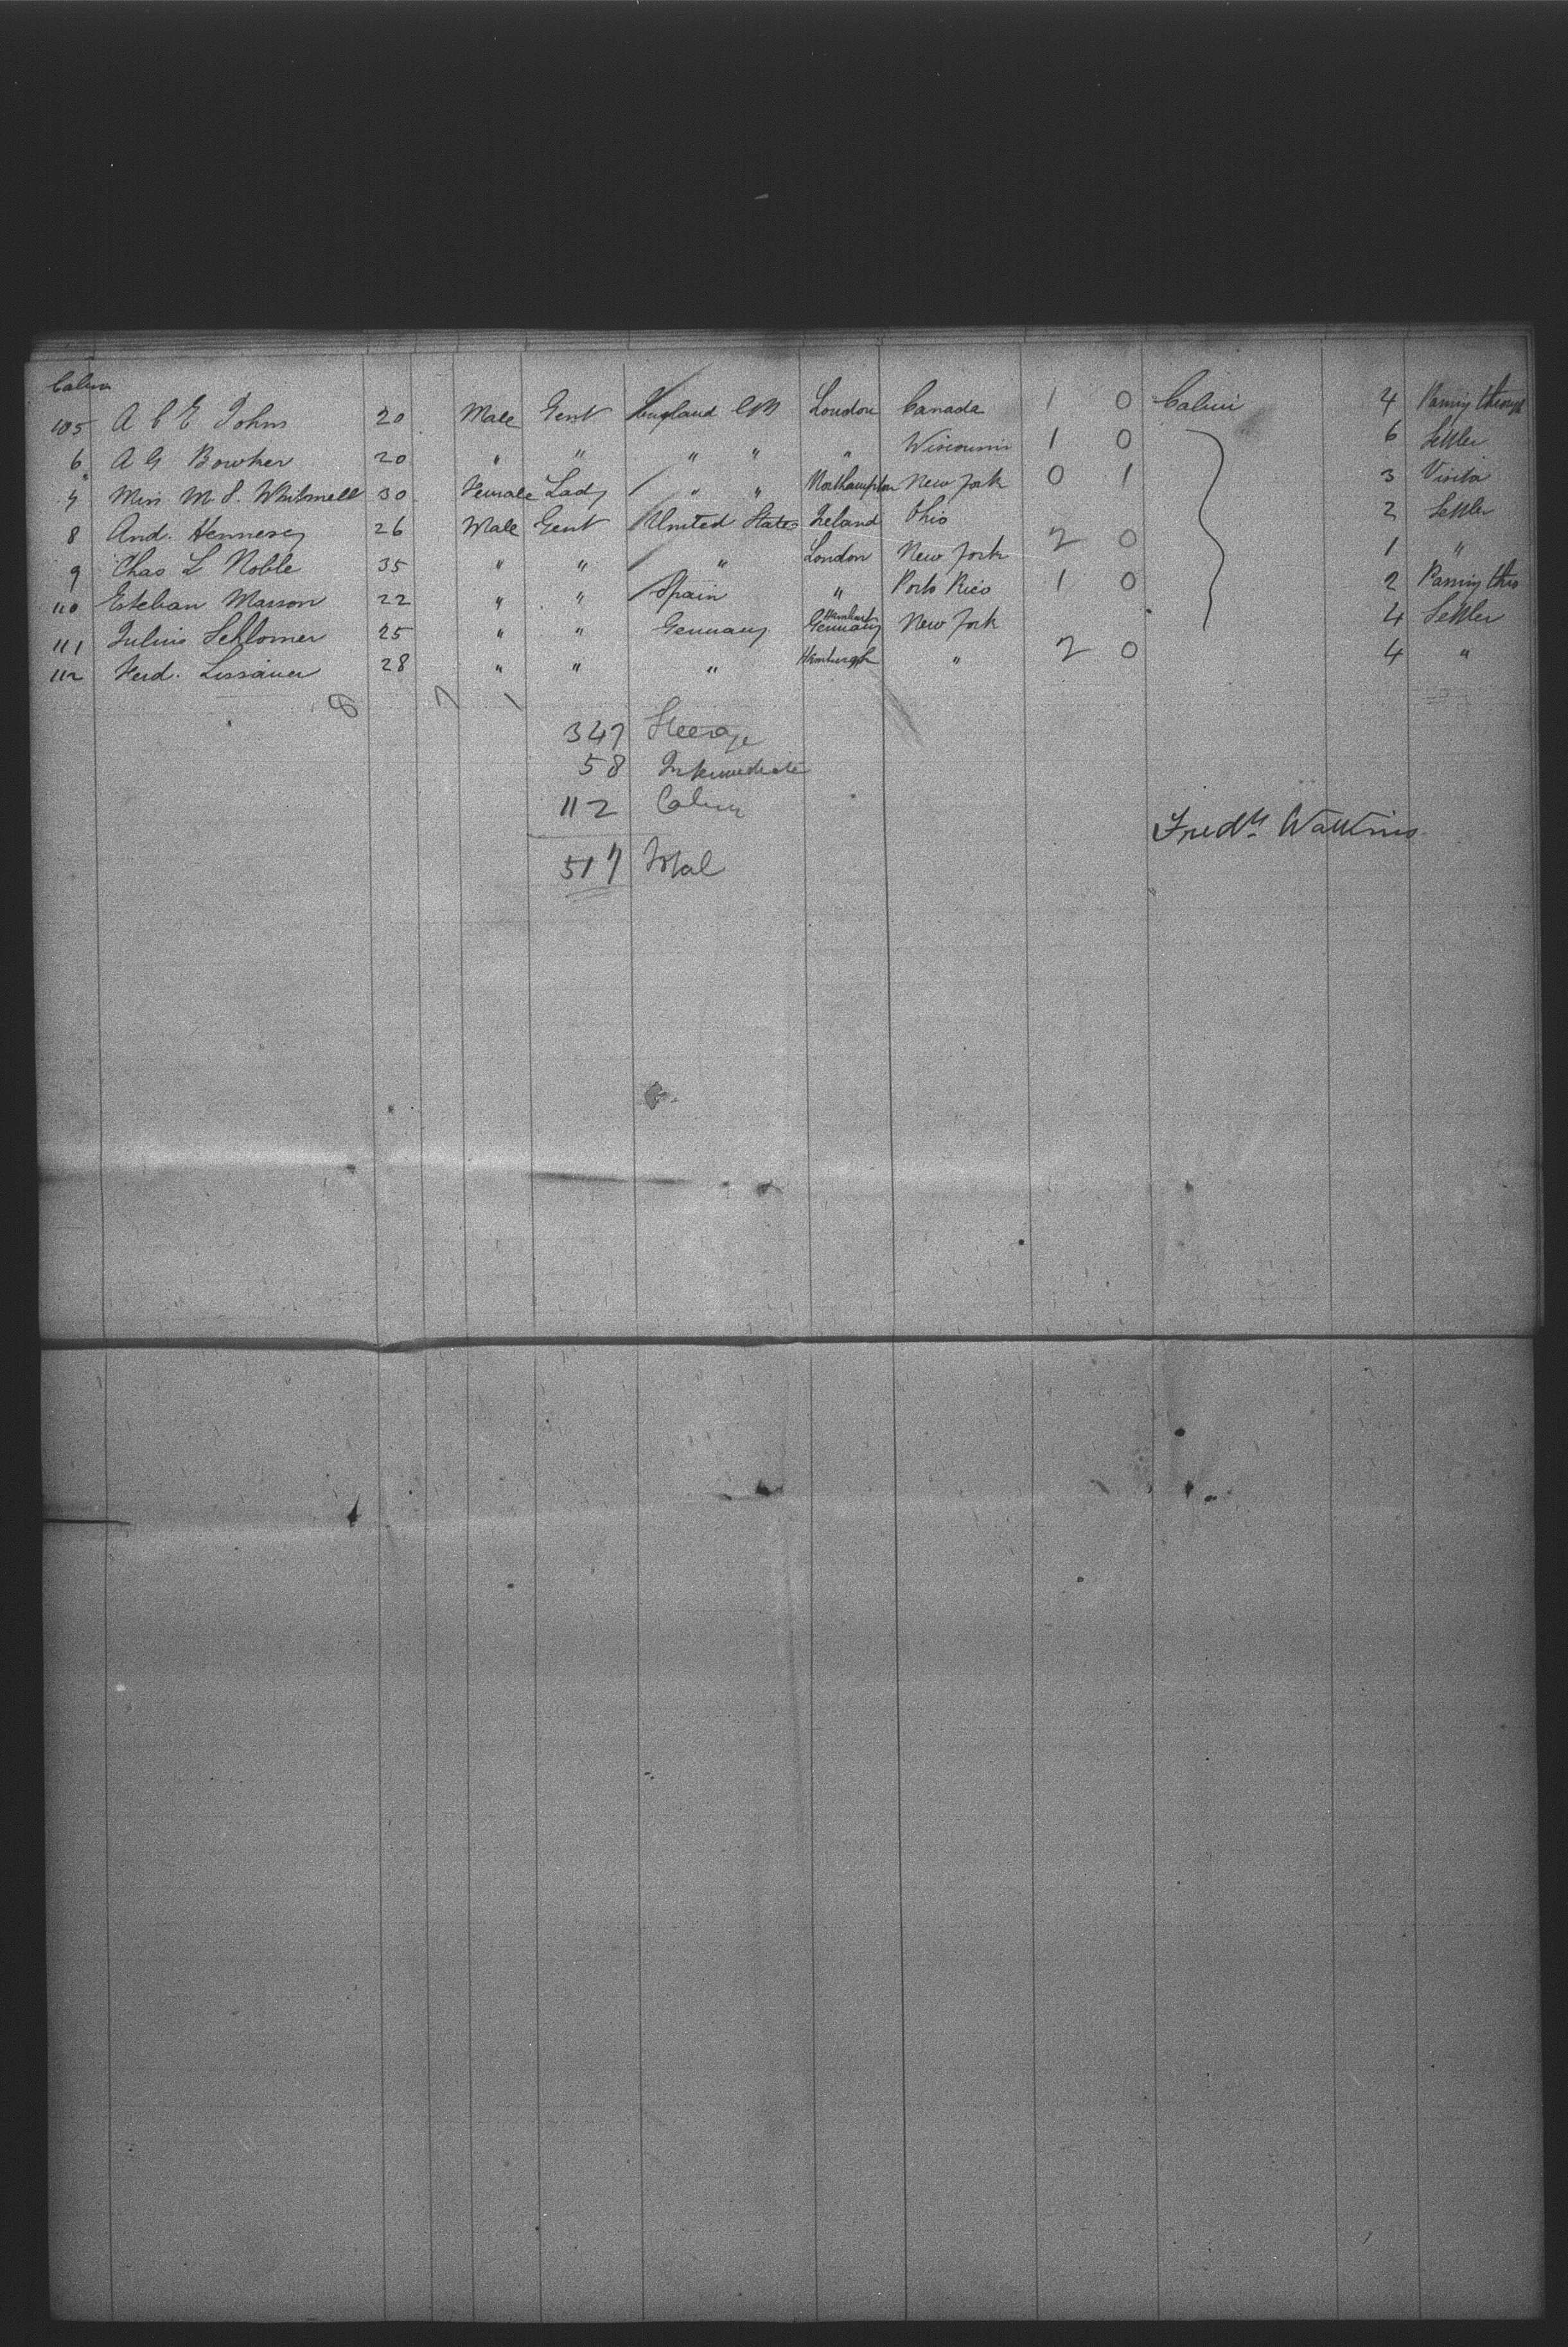 Cabin
105 A C E Johns 20 Male Gent England London Canada 1 0 Cabin 4 Passing through
6 A G Bowker 20 " " " " " Wisconsin 1 0 6 Settler
7 Miss M. S. Whitmell 30 Female Lady " " Northampton New York 0 1 3 Visitor
8 And. Hennesey 26 Male Gent United States Ireland Ohio 2 Settler
9 Chas L Noble 35 " " " London New York 2 0 1 "
110 Esteban Masson 22 " " Spain " Porto Rico 1 0 2 Passing thro
111 Julius Schlomer 25 " " Germany Germany New York 4 Settler
112 Ferd. Lissauer 28 " " " Hamburgh " 2 0 4 "
8 7 1
347 Steerage
58 Intermediate
112 Cabin
517 Total
Fredk Watkins